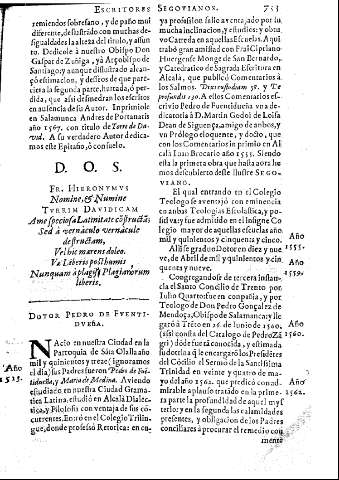 ESCRITORES SEGOVIANOS. 753
remiendos sobresano, y de paño muï
diferente, deslustrado con muchas de-
sigualdades la alteza del titulo, y asun
to. Dedicole à nuestro Obispo Don
Gaspar de Zuñiga, ya Arçobispo de
Santiago; y aunque disfrutado alcan-
çò estimacion, y deseos de que pare-
ciera la segunda parte, hurtada, ò per-
dida, que asi desfraudran los escritos
en ausencia de su Autor. Inprimiole
en Salamanca Andres de Portanaris
año 1567. con titulo de Torre de Da-
vid. A su verdadero Autor dedica-
mos este Epitafio, ò consuelo.
D. O. S.
FR. HIERONYMVS
Nomine, & Numine
TVRRIM DAVIDICAM
Amo speciosa Latinitate cõstructã;
Sed à vernaculo vernácule
destructam,
Vel hic marens doleo.
Va Liberis posthumis
Nunquam à plagis Plagiariorum
liberis.
DOTOR PEDRO DE FVENTI-
DVEÑA.
NAcio en nuestra Ciudad en la
Parroquia de Sãta Olalla año
Año mil y quinientos y treze (ignoramos
1513. el dia) sus Padres fueron Pedro de Fue-
tidueña, y Maria de Medina. Aviendo
estudiado en nuestra Ciudad Grama-
tica Latina, estudiò en Alcalà Dialec-
tica, y Filosofia con ventaja de sus co-
curentes. Entrò en el Colegio Trilin-
gue, donde profesò Retorica: en cu-
ya profesion salio aventajado por su
mucha inclinacion, y estudios: y obtu
vo Carreda en aquellas Escuelas. Aqui
trabò gran amistad con Frai Cipriano
Huergense Monge de San Bernardo,
y Catedratico de Sagrada Escritura en
Alcalà, que publicò Comentarios à
los Salmos. Trecesimo octavo 38. y Te
profundo 130. A ellos Comentarios es-
crivio Pedro de Fuentidueña vna de-
dicatoria à D. Martin Godol de Loisa
Dean de Siguença, amigo de anbos, y
vn Prologo eloquente, y docto, que
con los Comentarios inprimio en Al
calà Iuan Brocario año 1555. Siendo
esta la primera obra que hasta aora he
mos descubierto deste Ilustre SEGO-
VIANO.
El qual entrando en el Colegio
Teologo se aventajò con eminencia
en anbas Teologias Escolastica, y po-
sitiva: y fue admitido en el Insigne Co
legio mayor de aquellas escuelas año
mil y quinientos y cinquenta y cinco. Año
Alli se gradò Dotor en diez y nue 1555.
ve, de Abril de mil y quinientos y cin-
quenta y nueve. Año 1559.
Congregandose de tercera instan-
cia el Santo Concilio de Trento por
Iulio Quarto fue en conpañia, y por
Teologo de Don Pedro Gonçalez de
Mendoça, Obispo de Salamanca y lle
garon à Trèto en 26 de Iunio de 1560, Año
(asi consta del Catalogo de Pedro Zã 1560.
gri) dõde fuè tã conocida, y estimada
su dotrina q̃ le encargarò los Presidẽtes
del Cõcilio el Sermõ de la Santisima
Trinidad en veinte y quatro de ma-
yo del año 1562. que predicò con ad- Año
mirable aplauso tratado en la prime- 1562.
ra parte la profundidad de aquel mys
terio: y en la segunda las calamidades
presentes, y obligacion de los Padres
conciliares à procurar el remedio con
mente